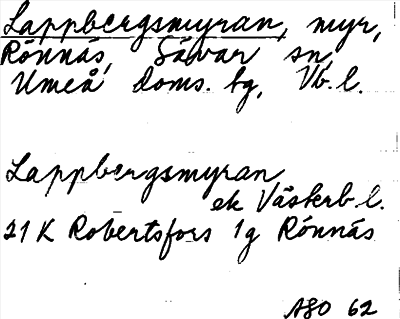 Lappbergsmyran, myr,
Rönnäs, Sävar sn,
Umeå Doms. hg, Vb. l.
Lappbergsmyran
ek Västerb l.
21 K Robertsfors 1g Rönnäs
ASO 62